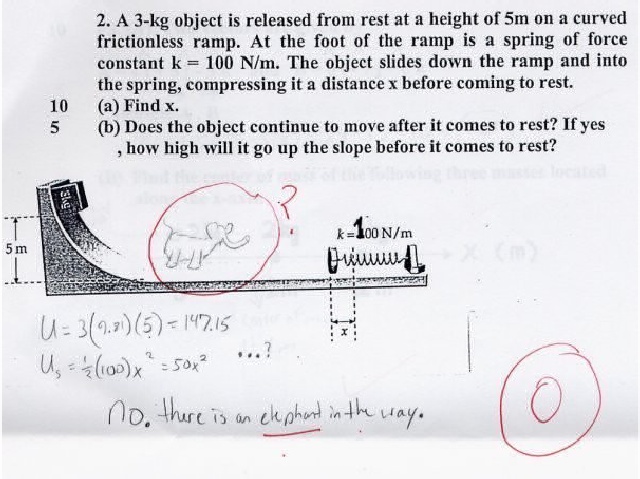 2. A 3-kg object is released from rest at a height of 5m on a curved
frictionless ramp. At the foot of the ramp is a spring of force
constant k = 100 N/m. The object slides down the ramp and into
the spring, compressing it a distance x before coming to rest.
10 (a) Find x.
5 (b) Does the object continue to move after it comes to rest? If yes
, how high will it go up the slope before it comes to rest?
3kg
?
k=100 N/m
5m
x
U = 3(9.81)(5) = 147.15
Us = ½(100)x² = 50x² ...?
No. there is an elephant in the way.
0